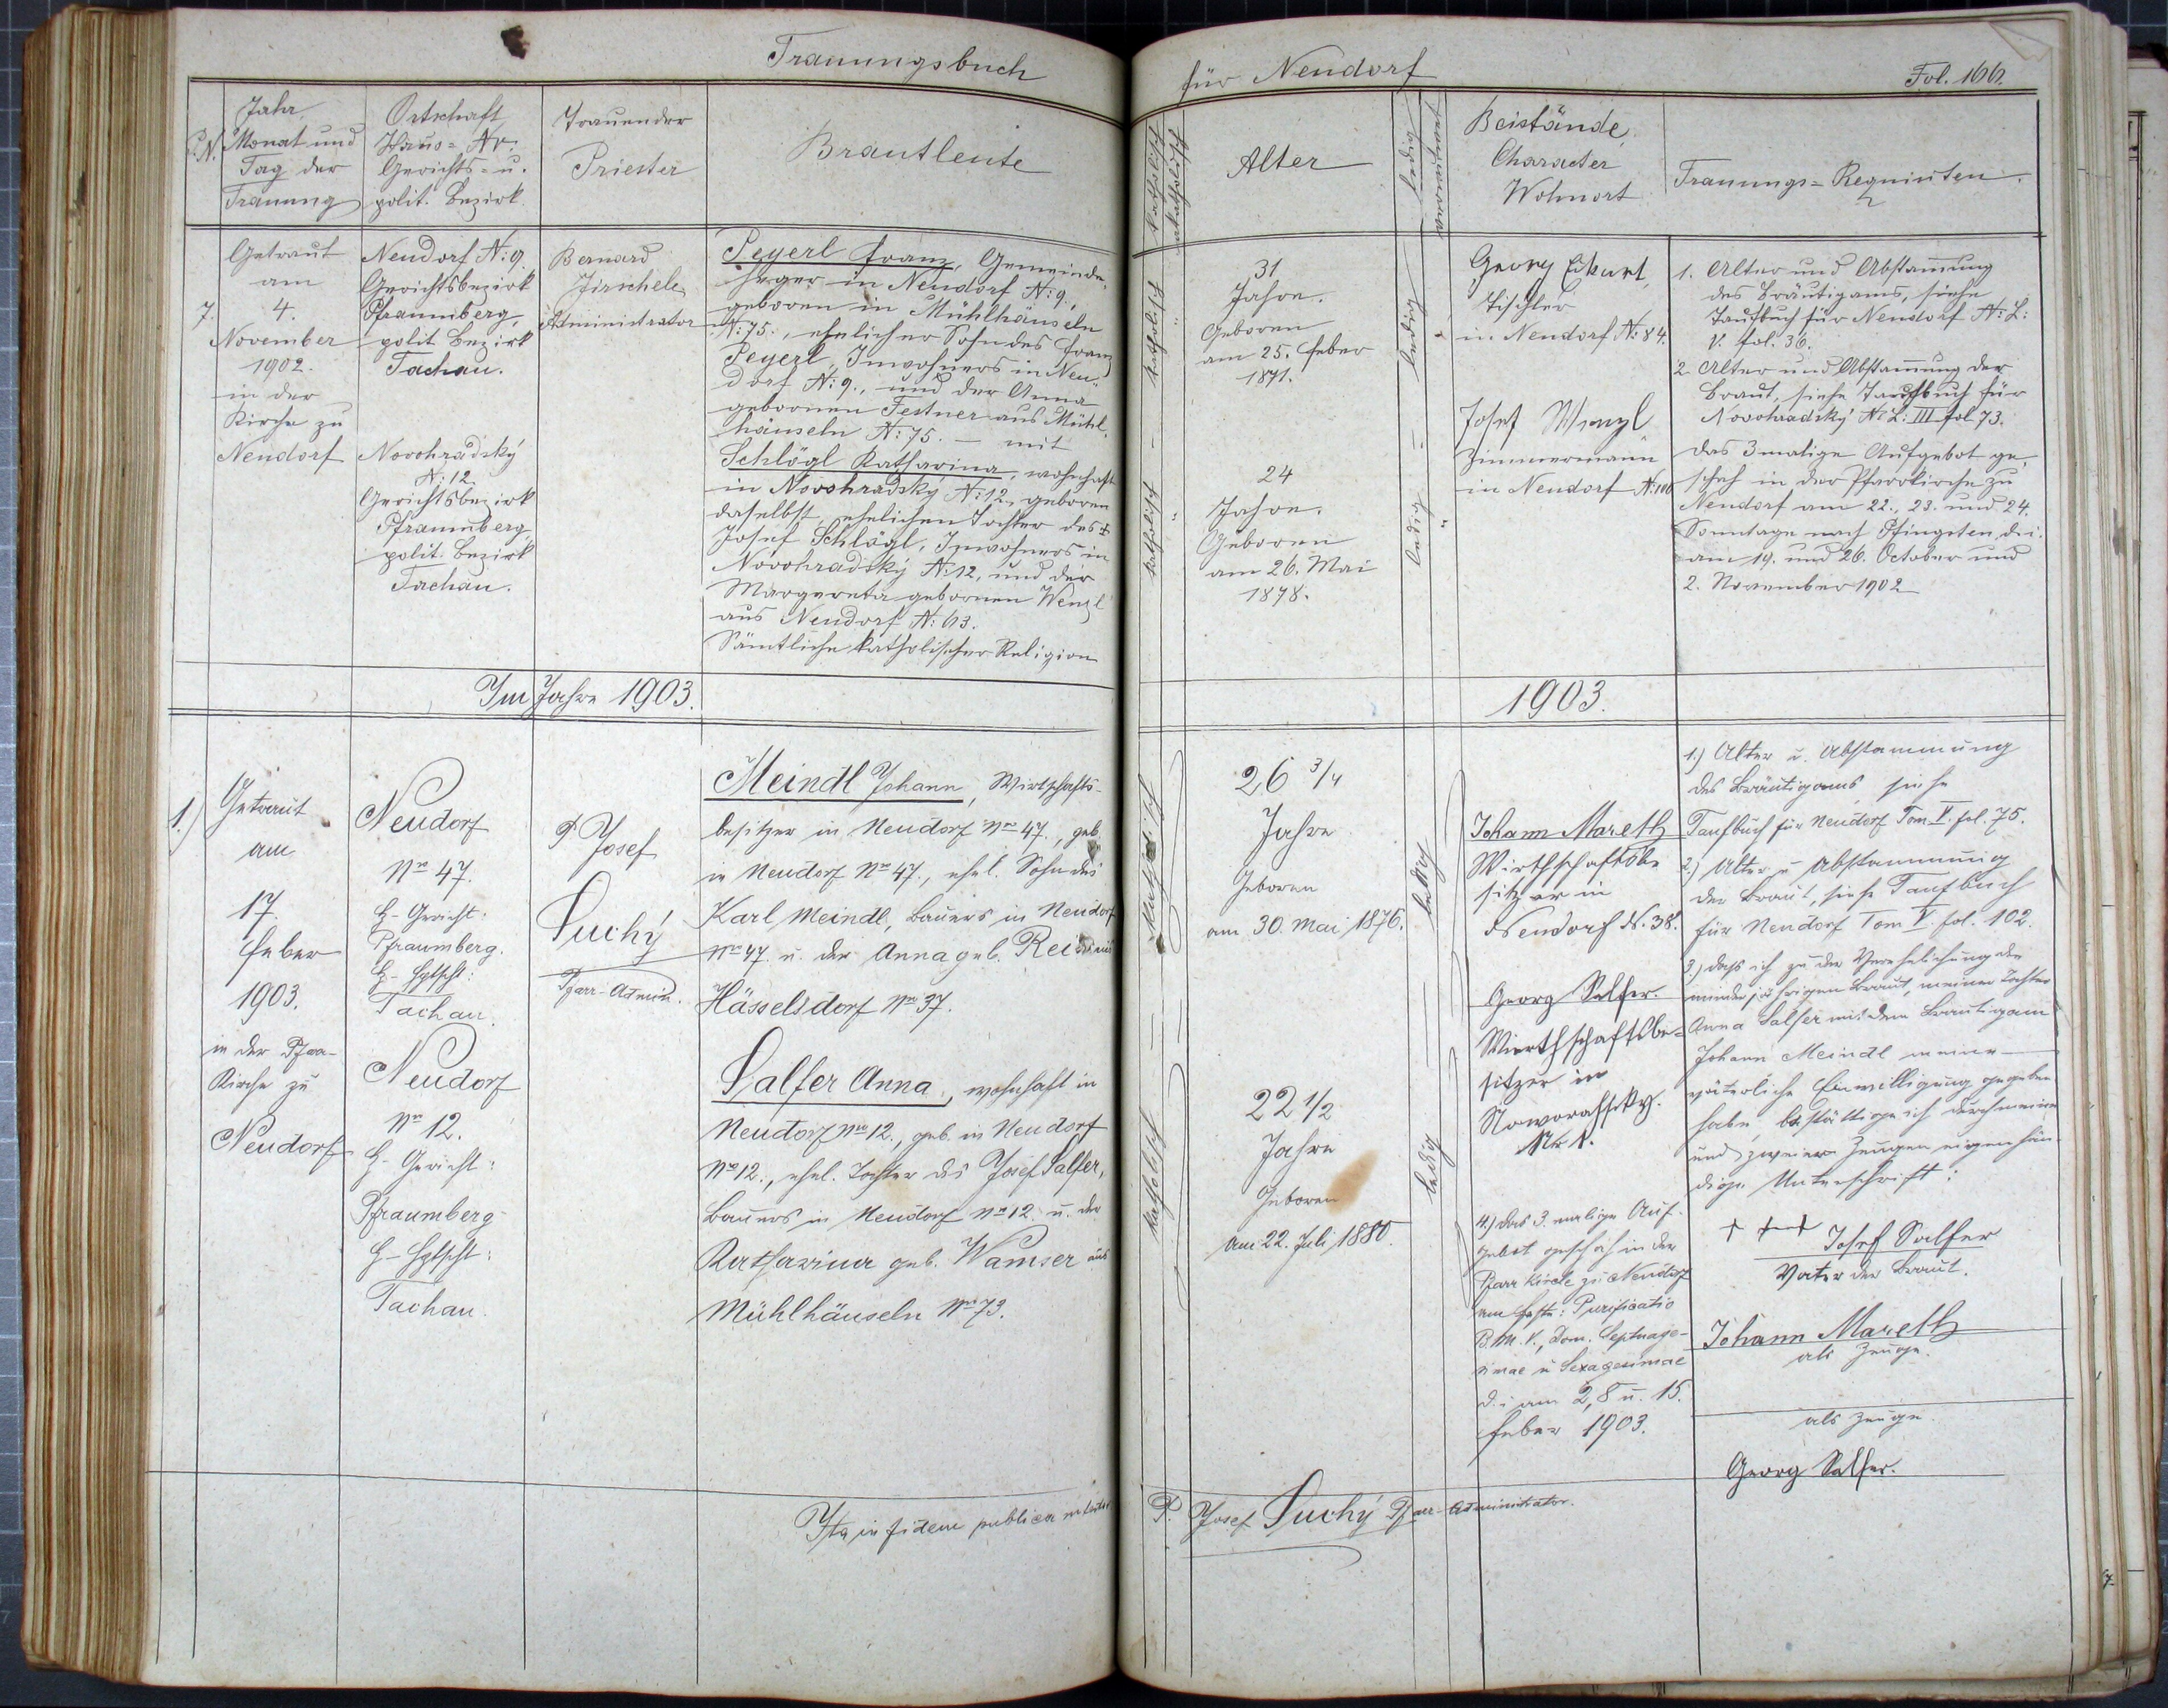 Trauungsbuch
für Neudorf
Fol. 166.
P.N.
Jahr
Monat und
Tag der
Trauung
Ortschaft
Haus-Nr.
Gerichts- u.
polit. Bezirk
Trauender
Priester
Brautleute
katholisch
akatholisch
Alter
ledig
verwitwet
Beistände,
Character
Wohnort
Trauungs-Requisiten.
7.
Getraut
am
4.
November
1902.
in der
Kirche zu
Neudorf
Neudorf N: 9.
Gerichtsbezirk
Pfraumberg,
polit. Bezirk
Tachau.
Novohradský
N: 12.
Gerichtsbezirk
Pfraumberg,
polit. Bezirk
Tachau.
Bernard
Jirschele
Administrator
Peyerl Franz, Gemeinde-
heger in Neudorf N: 9.,
geboren in Mühlhäuseln
N: 75., ehelicher Sohn des Franz
Peyerl, Inwohners in Neu-
dorf N: 9., und der Anna
gebornen Festner aus Mühl-
häuseln N: 75. – mit
Schlögl Katharina, wohnhaft
in Novohradský N: 12, geboren
daselbst, ehelichen Tochter des †
Josef Schlögl, Inwohners in
Novohradský N: 12, und der
Margareta gebornen Wenzl
aus Neudorf N: 63.
Sämtliche katholischer Religion
katholisch
katholisch
31
Jahre.
Geboren
am 25. Feber
1871.
24
Jahre.
Geboren
am 26. Mai
1878.
ledig
ledig
Georg Ekart,
Tischler
in Neudorf N: 84.
Josef Wenzl
Zimmermann
in Neudorf N: 106
1. Alter und Abstamung
des Bräutigams, siehe
Taufbuch für Neudorf N: L:
V. fol. 36.
2. Alter und Abstamung der
Braut, siehe Taufbuch für
Novohradský N: L: III fol 73.
Das 3malige Aufgebot ge-
schah in der Pfarrkirche zu
Neudorf am 22., 23. und 24.
Sonntage nach Pfingsten, d. i.
am 19. und 26. October und
2. November 1902
Im Jahre 1903.
1903.
1.)
Getraut
am
17.
Feber
1903.
in der Pfarr-
Kirche zu
Neudorf
Neudorf
Nro 47.
B-Gericht:
Pfraumberg.
B-Hptscht:
Tachau.
Neudorf
Nro 12.
B-Gericht:
Pfraumberg
B-Hptscht:
Tachau.
P. Josef
Suchý
Pfarr-Admin.
Meindl Johann, Wirtschafts-
besitzer in Neudorf Nro 47., geb.
in Neudorf Nro 47., ehel. Sohn des
Karl Meindl, Bauers in Neudorf
Nro 47. u. der Anna geb. Rei aus
Hässelsdorf Nro 37.
Salfer Anna, wohnhaft in
Neudorf Nro 12., geb. in Neudorf
Nro 12., ehel. Tochter des Josef Salfer,
Bauers in Neudorf Nro 12. u. der
Katharina geb. Wamser aus
Mühlhäuseln Nro 73.
katholisch
katholisch
26 3/4
Jahre
Geboren
am 30. Mai 1876.
22 1/2
Jahre
Geboren
am 22. Juli 1880.
ledig
ledig
Johann Mareth
Wirthschaftsbe
sitzer in
Neudorf N. 38.
Georg Salfer.
Wirthschaftsbe-
sitzer in
Noworahsky.
Nr. 1.
4.) das 3. malige Auf-
gebot geschah in der
Pfarr Kirche zu Neudorf
am Feste: Purificatio
B.M.V., Dom. Septuage-
simae u Sexagesimae
d. i am 2, 8 u. 15.
Feber 1903.
1.) Alter u. Abstammung
des Bräutigams siehe
Taufbuch für Neudorf Tom V. fol. 75.
2.) Alter u Abstammung
der Braut, siehe Taufbuch
für Neudorf Tom V fol. 102.
3.) dass ich zu der Verehelichung der
minderjährigen Braut, meiner Tochter
Anna Salfer mit dem Bräutigam
Johann Meindl meine
väterliche Einwilligung gegeben
habe, bestättige ich durch meine
und zweier Zeugen eigenhän-
dige Unterschrift:
+ + + Josef Salfer
Vater der Braut.
Johann Mareth
als Zeuge.
als Zeuge.
Georg Salfer.
Ita in fidem publicam
P. Josef Suchý Pfarr-Administrator.